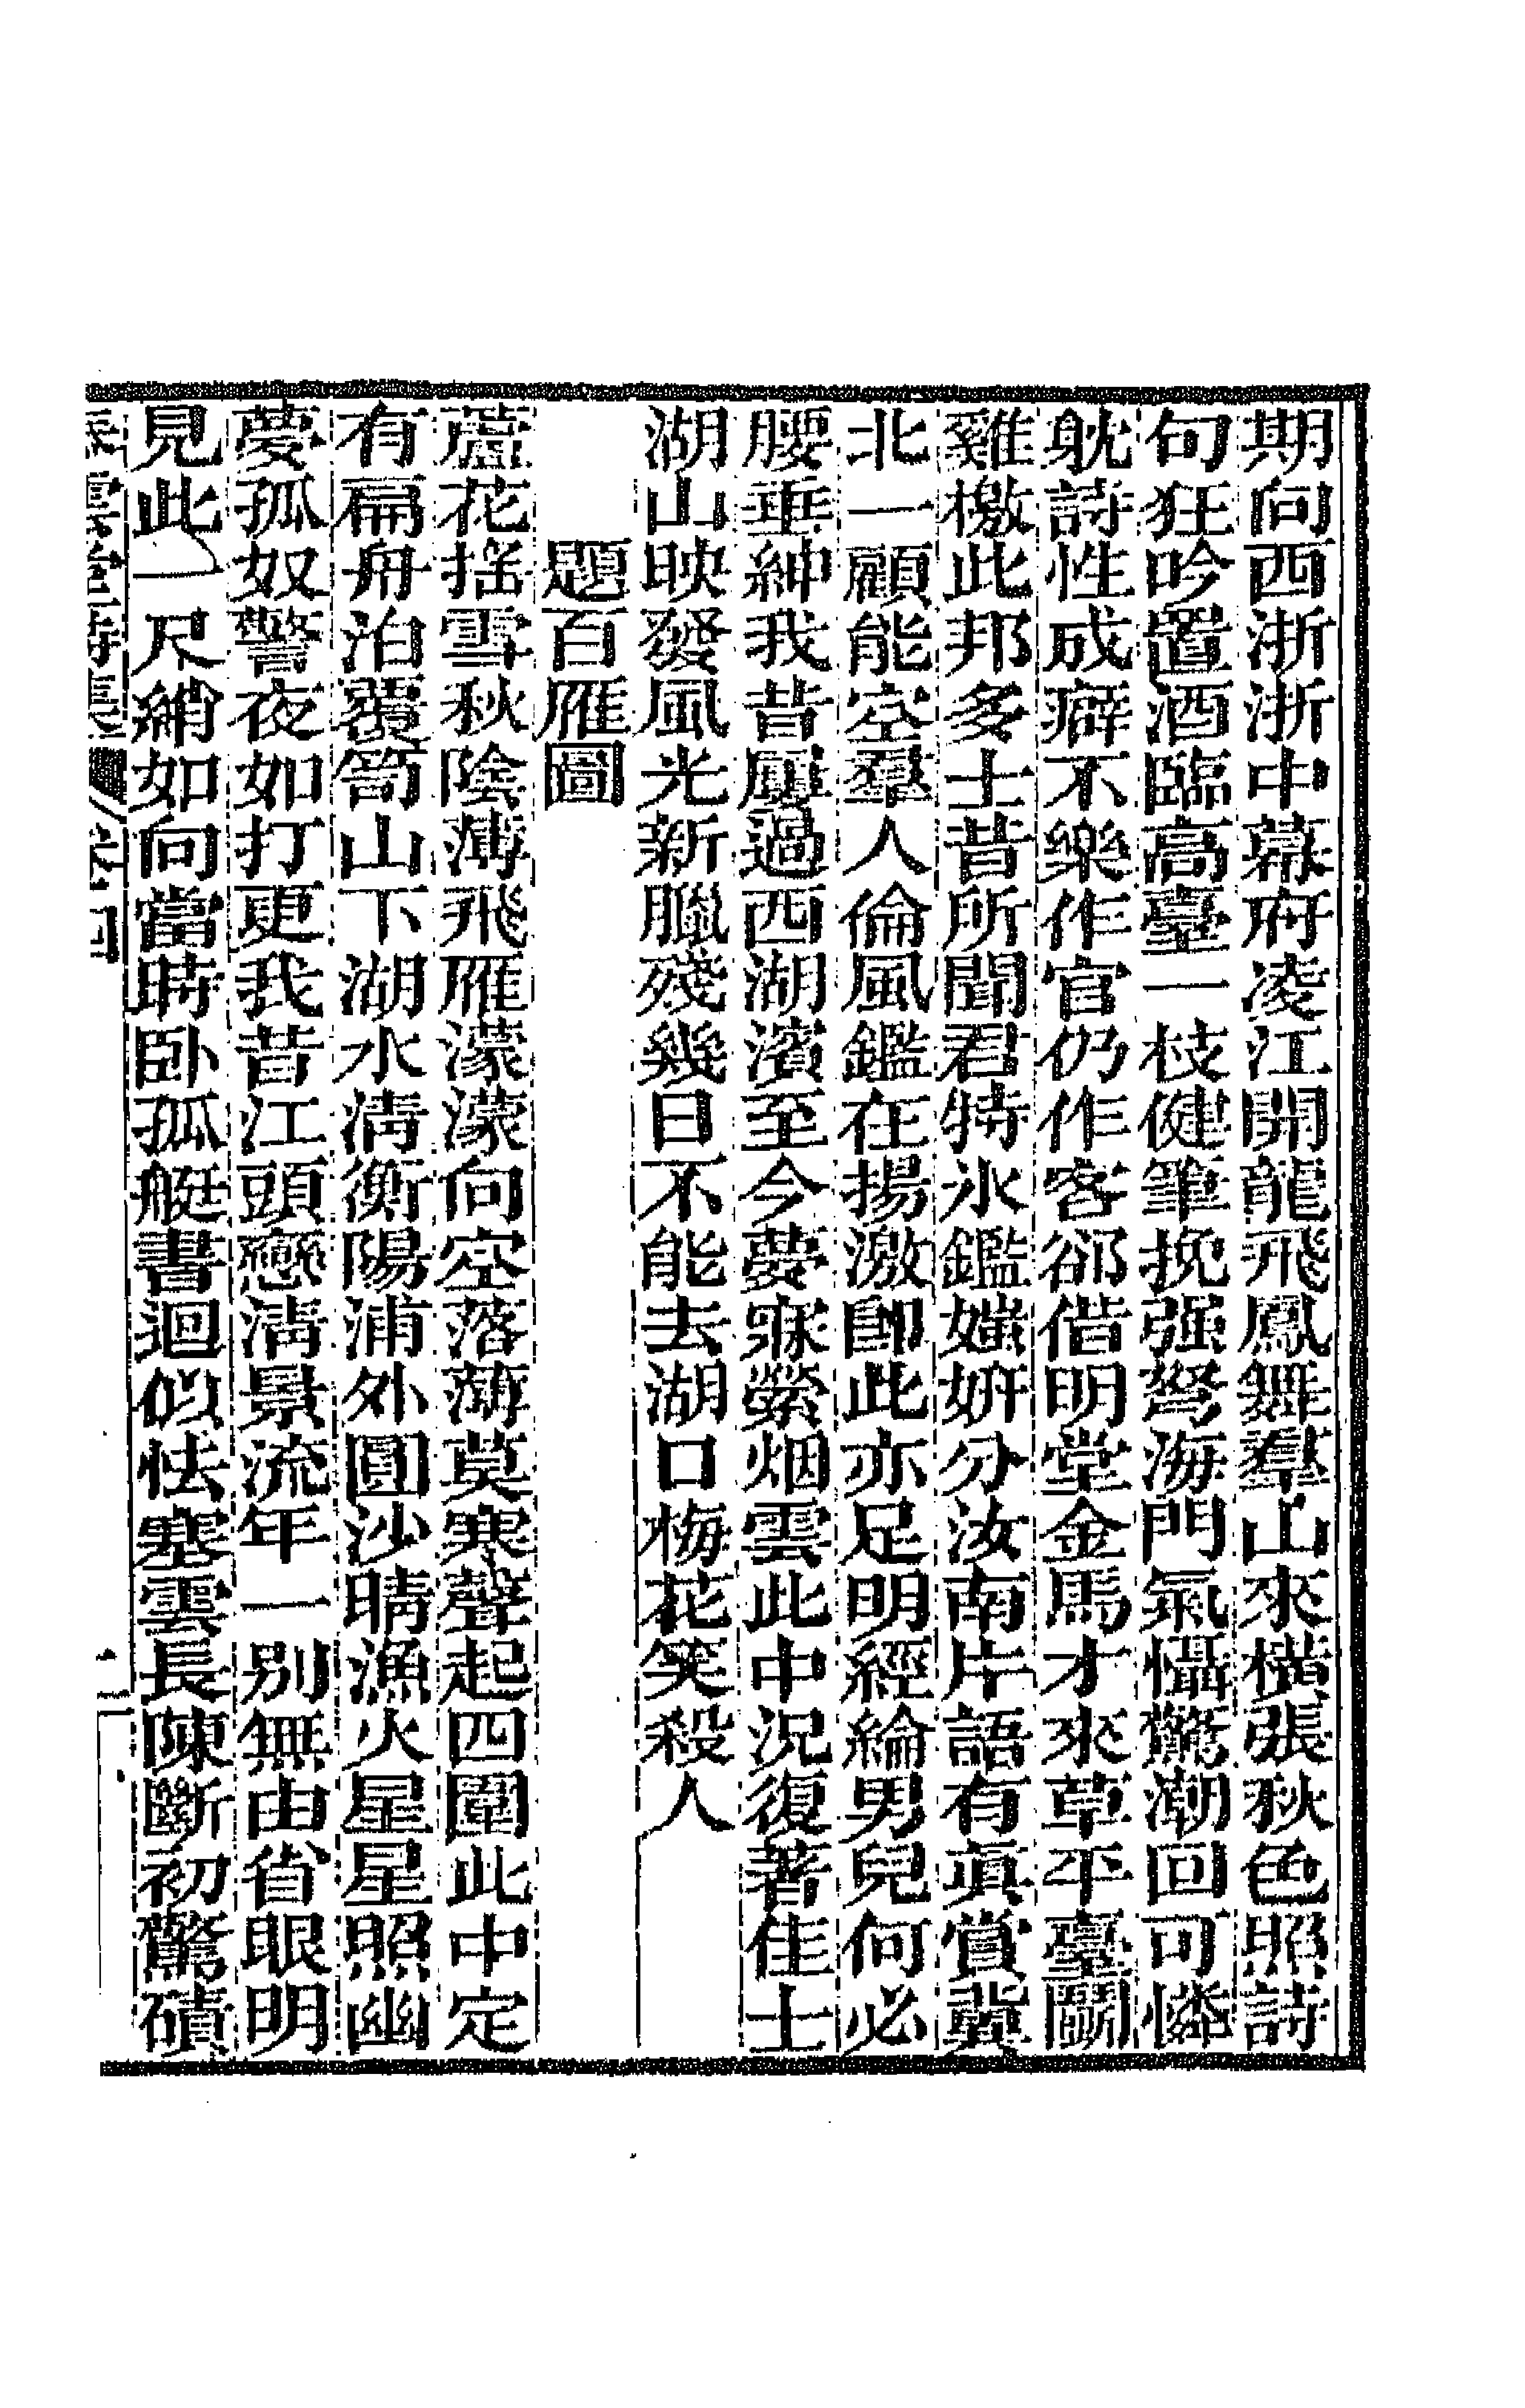 期向西浙浙中幕府凌江開龍飛鳳舞羣山來橫張秋色照詩
句狂吟置酒臨高臺一枝健筆挽强弩海門氣懾驚潮回可憐
躭詩性成癖不樂作官仍作客郤偕明堂金馬才來草平臺鬭
雞檄此邦多士昔所聞君特氷鑑媸妍分汝南片語有眞賞冀
北一顧能空羣人倫風鑑在揚激卽此亦足明經綸男兒何必
腰垂紳我昔屢過西湖濱至今夢寐縈烟雲此中況復著佳士
湖山映發風光新臘殘幾日不能去湖口梅花笑殺人
題百雁圖
蘆花搖雪秋陰薄飛雁濛濛向空落蒲莫寒聲起四圍此中定
有扁舟泊覆笥山下湖水淸衡陽浦外圓沙晴漁火星星照幽
夢孤奴警夜如打更我昔江頭戀淸景流年一別無由省眼明
見此一尺綃如向當時卧孤艇書迴似怯塞雲長陳斷初驚磧
雲堂詩集 卷四 二